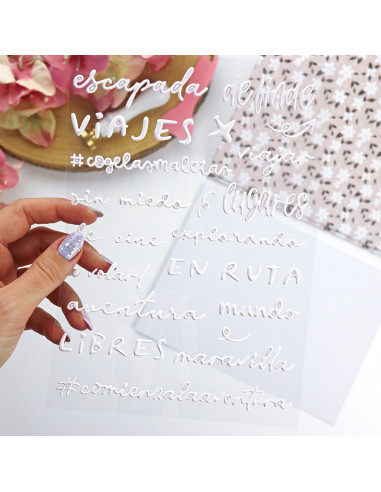 escapada donde
VIAJES
#cogelasmaletas viajar
sin miedo & lugares
de cine explorando
a volar! EN RUTA
aventura mundo
e
LIBRES maravilla
#comienzalaaventura